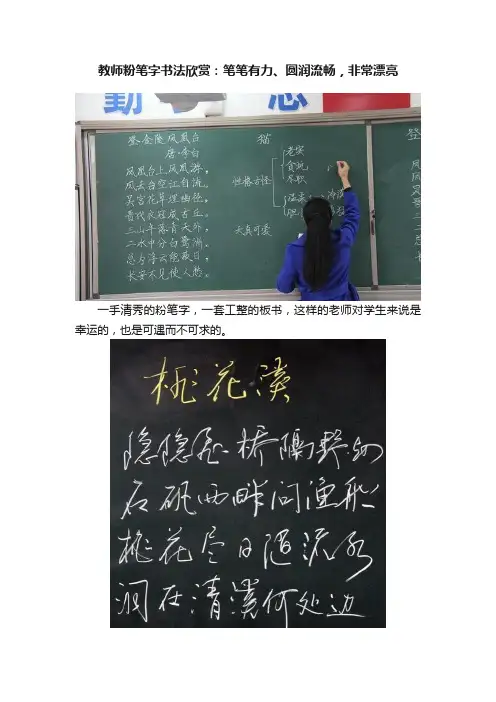 教师粉笔字书法欣赏：笔笔有力、圆润流畅，非常漂亮
勤 思
登·金陵凤凰台
唐·李白
凤凰台上凤凰游，
凤去台空江自流。
吴宫花草埋幽径，
晋代衣冠成古丘。
三山半落青天外，
二水中分白鹭洲。
总为浮云能蔽日，
长安不见使人愁。
猫
老实
贪玩
尽职
性格古怪
温柔
冷漠
胆
天真可爱
登
一手清秀的粉笔字，一套工整的板书，这样的老师对学生来说是
幸运的，也是可遇而不可求的。
桃花溪
隐隐飞桥隔野烟
石矶西畔问渔船
桃花尽日随流水
洞在清溪何处边